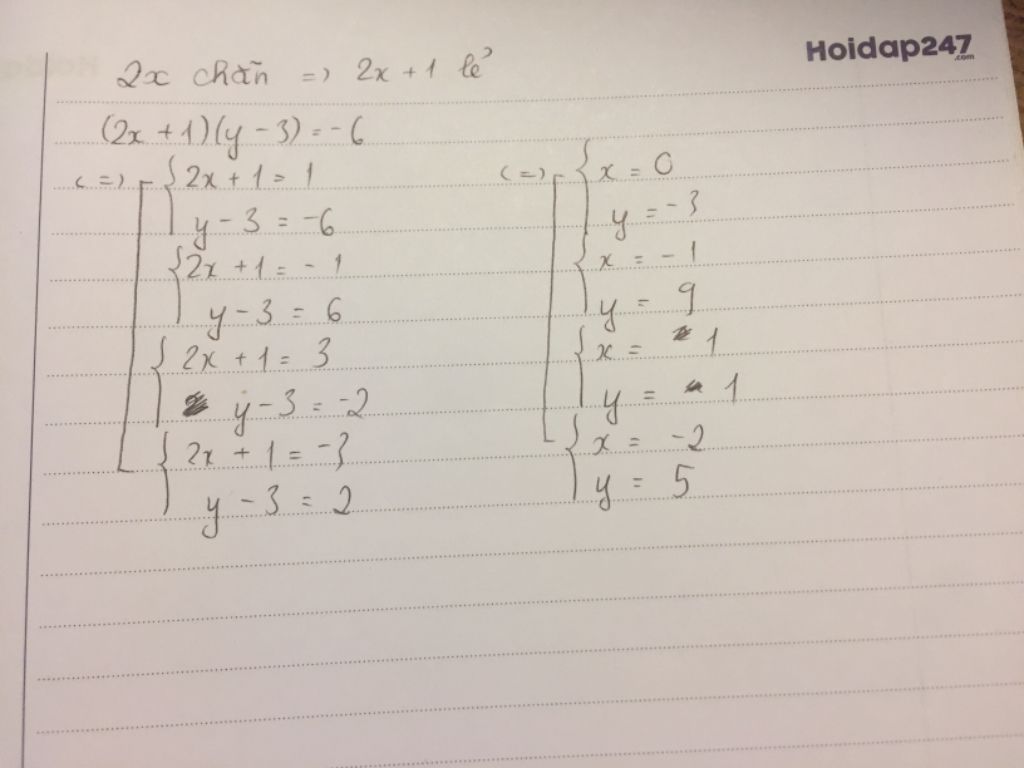 Hoidap247
.com
2x chẵn => 2x + 1 lẻ
(2x + 1)(y - 3) = -6
<=> 2x + 1 = 1
y - 3 = -6
2x + 1 = -1
y - 3 = 6
2x + 1 = 3
y - 3 = -2
2x + 1 = -3
y - 3 = 2
<=> x = 0
y = -3
x = -1
y = 9
x = 1
y = 1
x = -2
y = 5